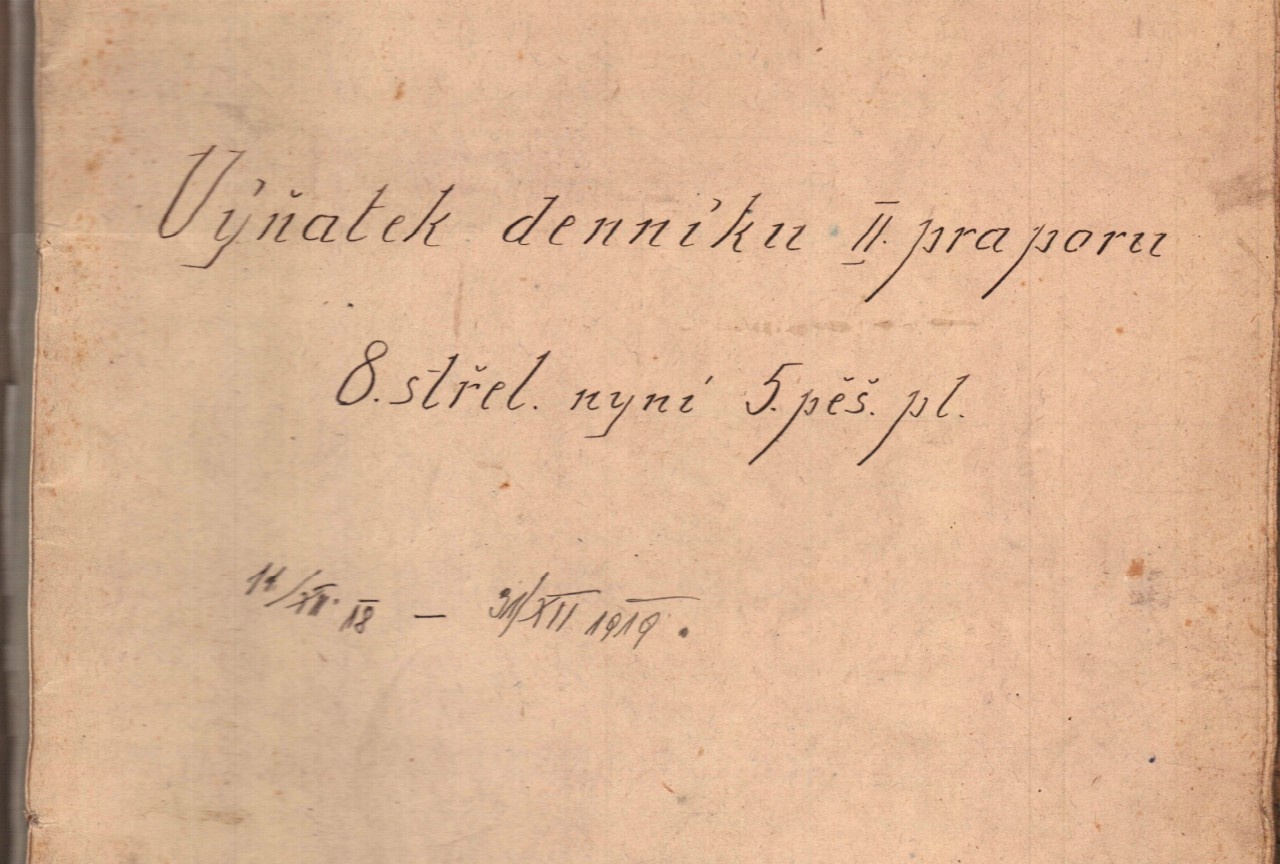 Výňatek denníku II. praporu
8. střel. nyní 5. pěš. pl.
/XII. 18 — 31/XII 1919.